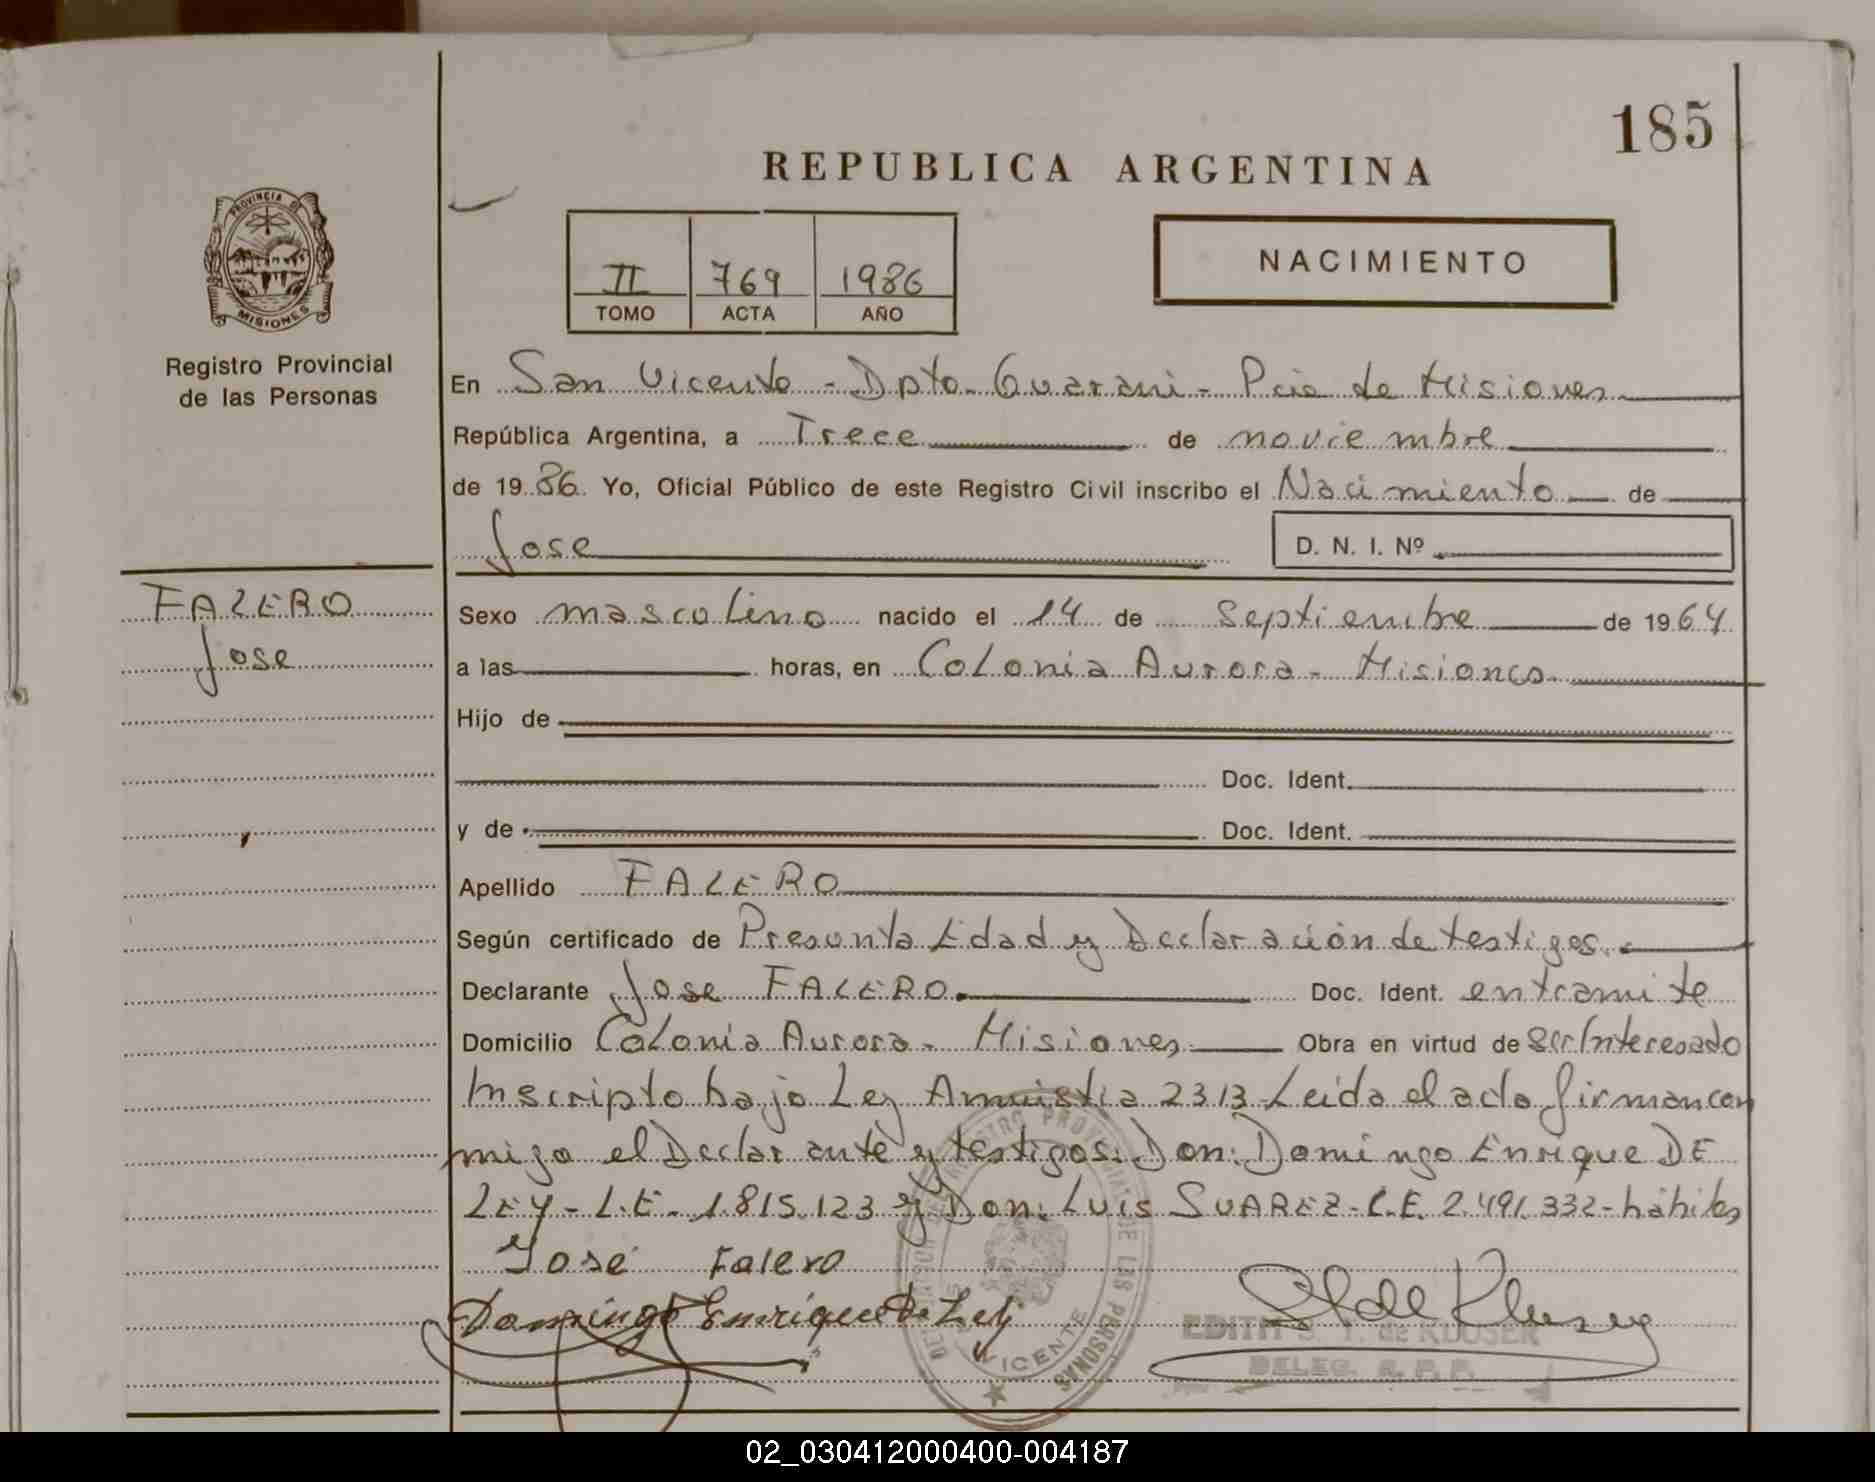 185
REPUBLICA ARGENTINA
PROVINCIA DE
MISIONES
II 769 1986
TOMO ACTA AÑO
NACIMIENTO
Registro Provincial
de las Personas
En San Vicente - Dpto. Guarani - Pcia de Misiones
República Argentina, a Trece de noviembre
de 1986. Yo, Oficial Público de este Registro Civil inscribo el Nacimiento de
Jose D. N. I. Nº
FALERO
Jose
Sexo masculino nacido el 14 de Septiembre de 1964
a las horas, en Colonia Aurora - Misiones
Hijo de
Doc. Ident.
y de Doc. Ident.
Apellido FALERO
Según certificado de Presunta Edad y Declaración de testigos.
Declarante Jose FALERO. Doc. Ident. entramite
Domicilio Colonia Aurora - Misiones Obra en virtud de Ser Interesado
Inscripto bajo Ley Amnistia 2313 - Leida el acta firman con
migo el Declarante y testigos: Don: Domingo Enrique DE
LEY - L.E. 1.815.123 y Don: LUIS SUAREZ - L.E. 2.491.332 - hábiles
José Falero
Domingo Enrique De Ley
REGISTRO PROVINCIAL DE LAS PERSONAS
VICENTE
EDITH S. T. de KLUSER
DELEG. R. P. P.
02_030412000400-004187